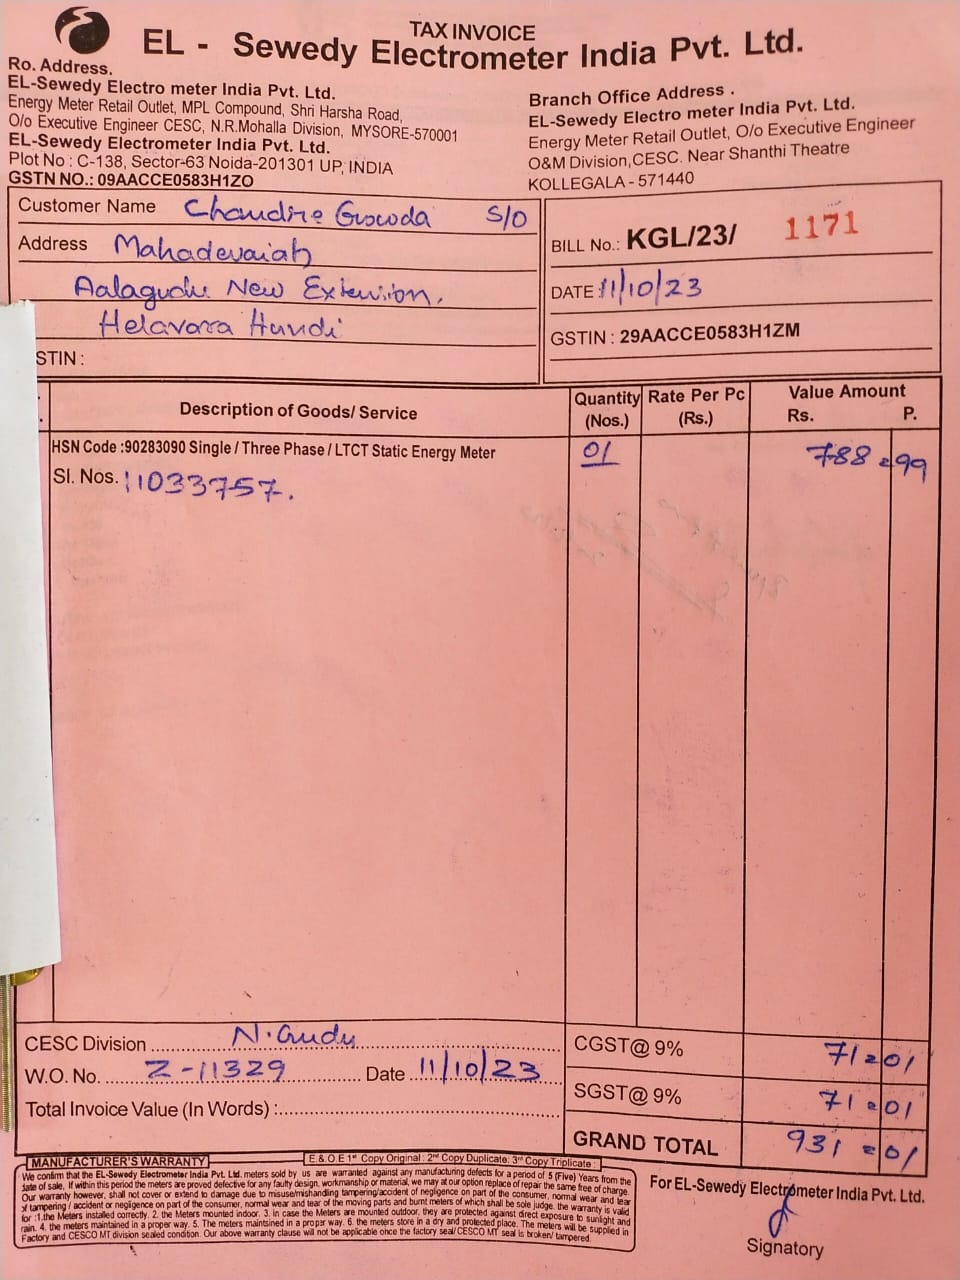 TAX INVOICE
EL - Sewedy Electrometer India Pvt. Ltd.
Ro. Address.
EL-Sewedy Electro meter India Pvt. Ltd.
Energy Meter Retail Outlet, MPL Compound, Shri Harsha Road,
O/o Executive Engineer CESC, N.R.Mohalla Division, MYSORE-570001
EL-Sewedy Electrometer India Pvt. Ltd.
Plot No : C-138, Sector-63 Noida-201301 UP, INDIA
GSTN NO.: 09AACCE0583H1ZO
Branch Office Address .
EL-Sewedy Electro meter India Pvt. Ltd.
Energy Meter Retail Outlet, O/o Executive Engineer
O&M Division,CESC. Near Shanthi Theatre
KOLLEGALA - 571440
Customer Name Chandre Gowda S/O
Address Mahadevaiah
Aalagudu New Extension,
Helavara Hundi
STIN :
BILL No.: KGL/23/ 1171
DATE : 11/10/23
GSTIN : 29AACCE0583H1ZM
Description of Goods/ Service Quantity (Nos.) Rate Per Pc (Rs.) Value Amount Rs. P.
HSN Code :90283090 Single / Three Phase / LTCT Static Energy Meter 01 788=99
Sl. Nos. 11033757.
CESC Division N.Gudu
W.O. No. Z-11329 Date 11/10/23
Total Invoice Value (In Words) :
CGST@ 9% 71=01
SGST@ 9% 71=01
GRAND TOTAL 931=01
E & O E 1st Copy Original : 2nd Copy Duplicate: 3rd Copy Triplicate :
MANUFACTURER'S WARRANTY
We confirm that the EL-Sewedy Electrometer India Pvt. Ltd. meters sold by us are warranted against any manufacturing defects for a period of 5 (Five) Years from the
date of sale. If within this period the meters are proved defective for any faulty design, workmanship or material, we may at our option replace of repair the same free of charge.
Our warranty however, shall not cover or extend to damage due to misuse/mishandling tampering/accident of negligence on part of the consumer, normal wear and tear
of tampering / accident or negligence on part of the consumer, normal wear and tear of the moving parts and burnt meters of which shall be sole judge. the warranty is valid
for :1.the Meters installed correctly. 2. the Meters mounted indoor. 3. in case the Meters are mounted outdoor, they are protected against direct exposure to sunlight and
rain. 4. the meters maintained in a proper way. 5. The meters maintsined in a proper way. 6. the meters store in a dry and protected place. The meters will be supplied in
Factory and CESCO MT division sealed condition. Our above warranty clause will not be applicable once the factory seal/CESCO MT seal is broken/ tampered.
For EL-Sewedy Electrometer India Pvt. Ltd.
Signatory